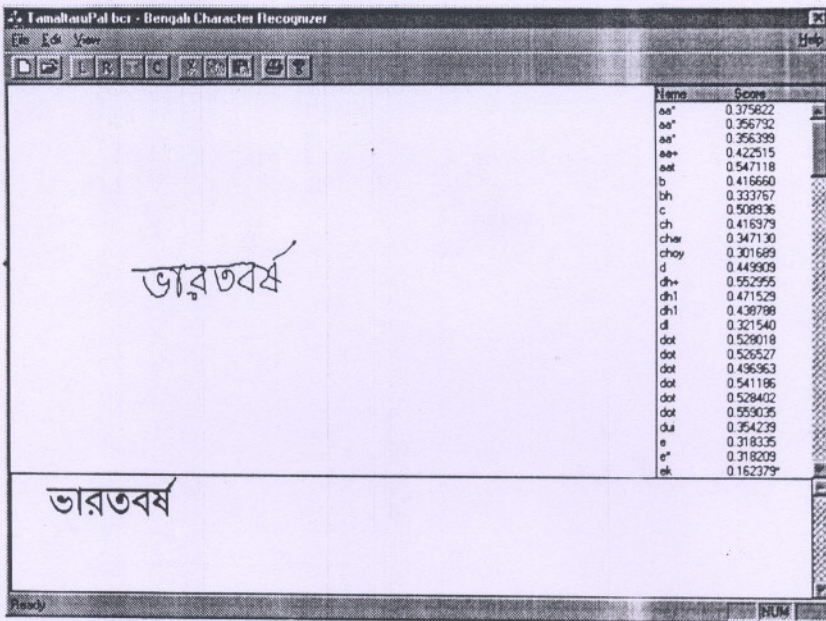 TamaltaruPal.bcr - Bengali Character Recognizer
File Edit View Help
L R T C
Name Score
aa" 0.375822
aa" 0.356792
aa" 0.356399
aa+ 0.422515
aat 0.547118
b 0.416660
bh 0.333767
c 0.508936
ch 0.416979
char 0.347130
choy 0.301689
d 0.449909
dh+ 0.552955
dh1 0.471529
dh1 0.438788
dl 0.321540
dot 0.528018
dot 0.526527
dot 0.496963
dot 0.541186
dot 0.528402
dot 0.559035
dui 0.354239
e 0.318335
e" 0.318209
ek 0.162379"
ভারতবর্ষ
ভারতবর্ষ
Ready NUM